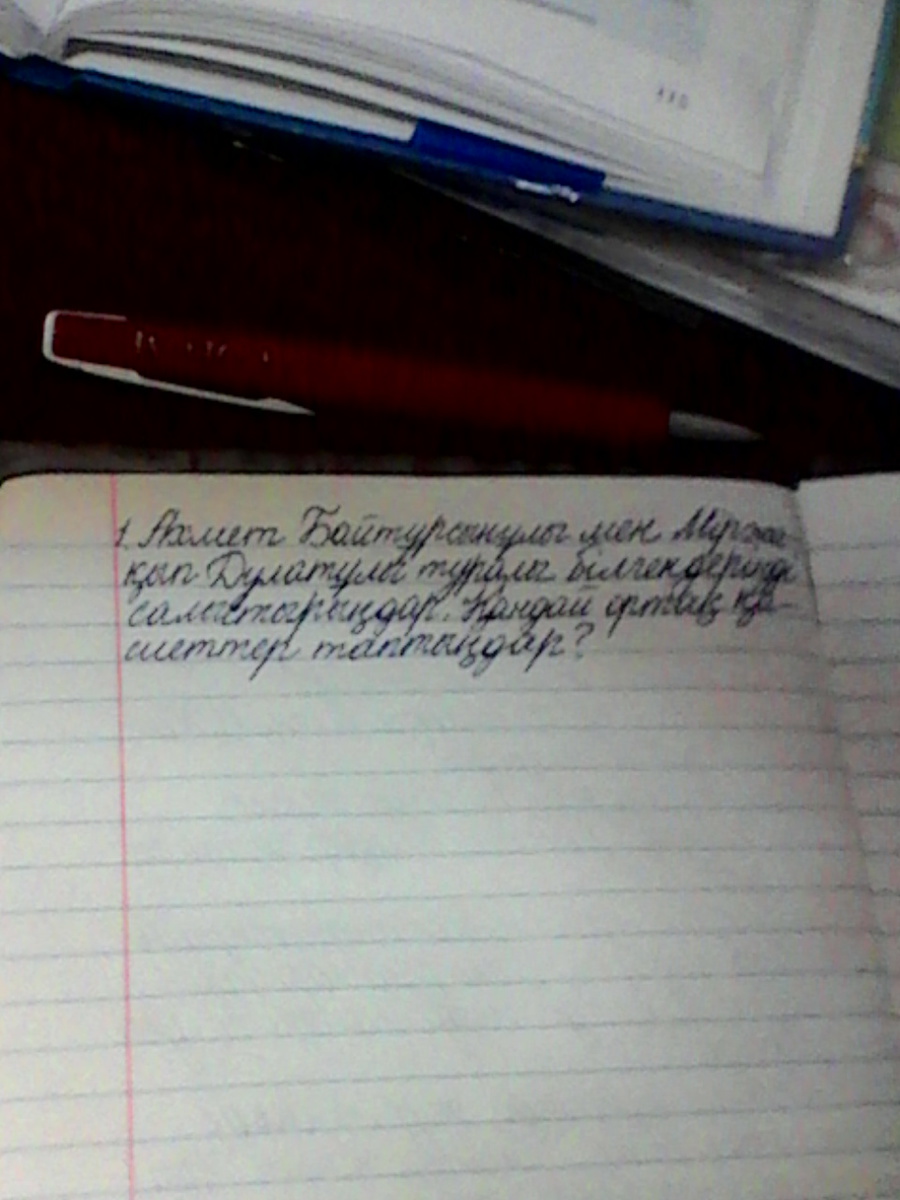 1. Ахмет Байтұрсынұлы мен Міржа-
қып Дулатұлы туралы білгендеріңді
салыстырыңдар. Қандай ортақ қа-
сиеттер таптыңдар?